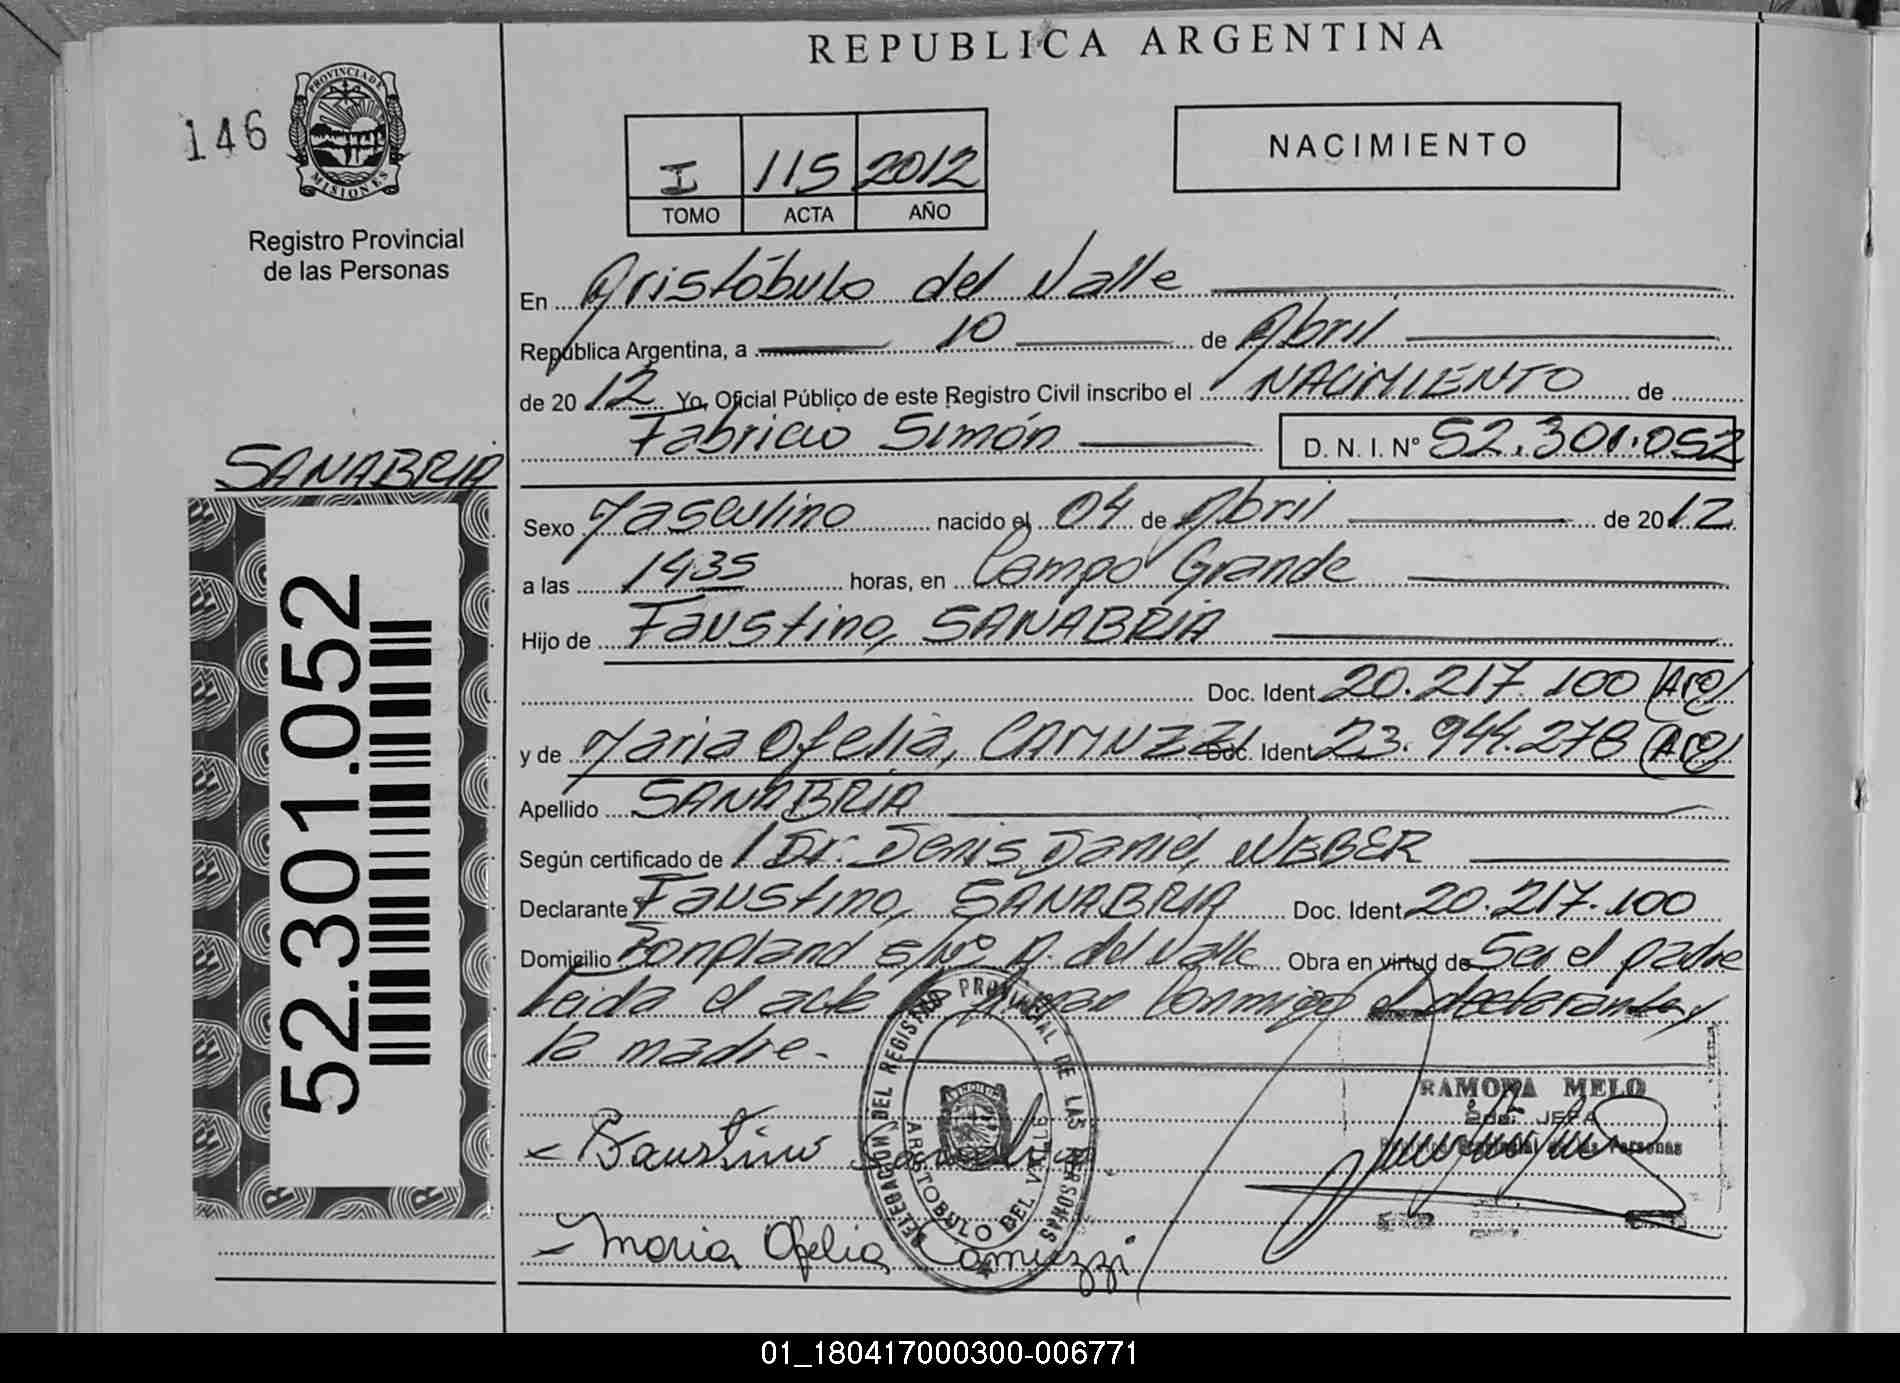 REPUBLICA ARGENTINA
146
PROVINCIA DE
MISIONES
Registro Provincial
de las Personas
I 115 2012
TOMO ACTA AÑO
NACIMIENTO
En Aristóbulo del Valle
República Argentina, a 10 de Abril
de 2012 Yo, Oficial Público de este Registro Civil inscribo el NACIMIENTO de
Fabricio Simón D. N. I. Nº 52.301.052
SANABRIA
Sexo Masculino nacido el 04 de Abril de 2012
a las 1435 horas, en Campo Grande
Hijo de Faustino, SANABRIA
Doc. Ident. 20.217.100 (Arg)
y de Maria Ofelia, CAMUZZI Doc. Ident. 23.944.278 (Arg)
Apellido SANABRIA
Según certificado de Dr. Denis Daniel WEBER
Declarante Faustino, SANABRIA Doc. Ident. 20.217.100
Domicilio Bonpland s/nº A. del Valle Obra en virtud de Ser el padre
Leida el acta la firman conmigo el declarante y
la madre.-
52.301.052
DELEGACION DEL REGISTRO PROVINCIAL DE LAS PERSONAS
ARISTOBULO DEL VALLE
RAMONA MELO
2da. JEFA
Personas
Faustino
Maria Ofelia Camuzzi
01_180417000300-006771